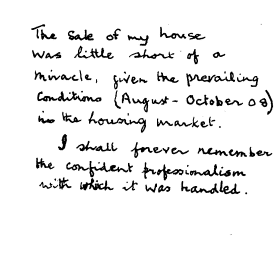 The Sale of my house
was little short of a
miracle, given the prevailing
Conditions (August - October 08)
in the housing market.
I shall forever remember
the confident professionalism
with which it was handled.